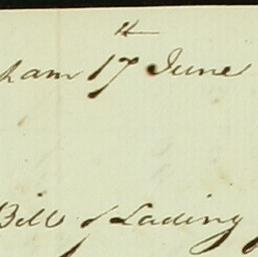 ham 17th June
Bill of Lading